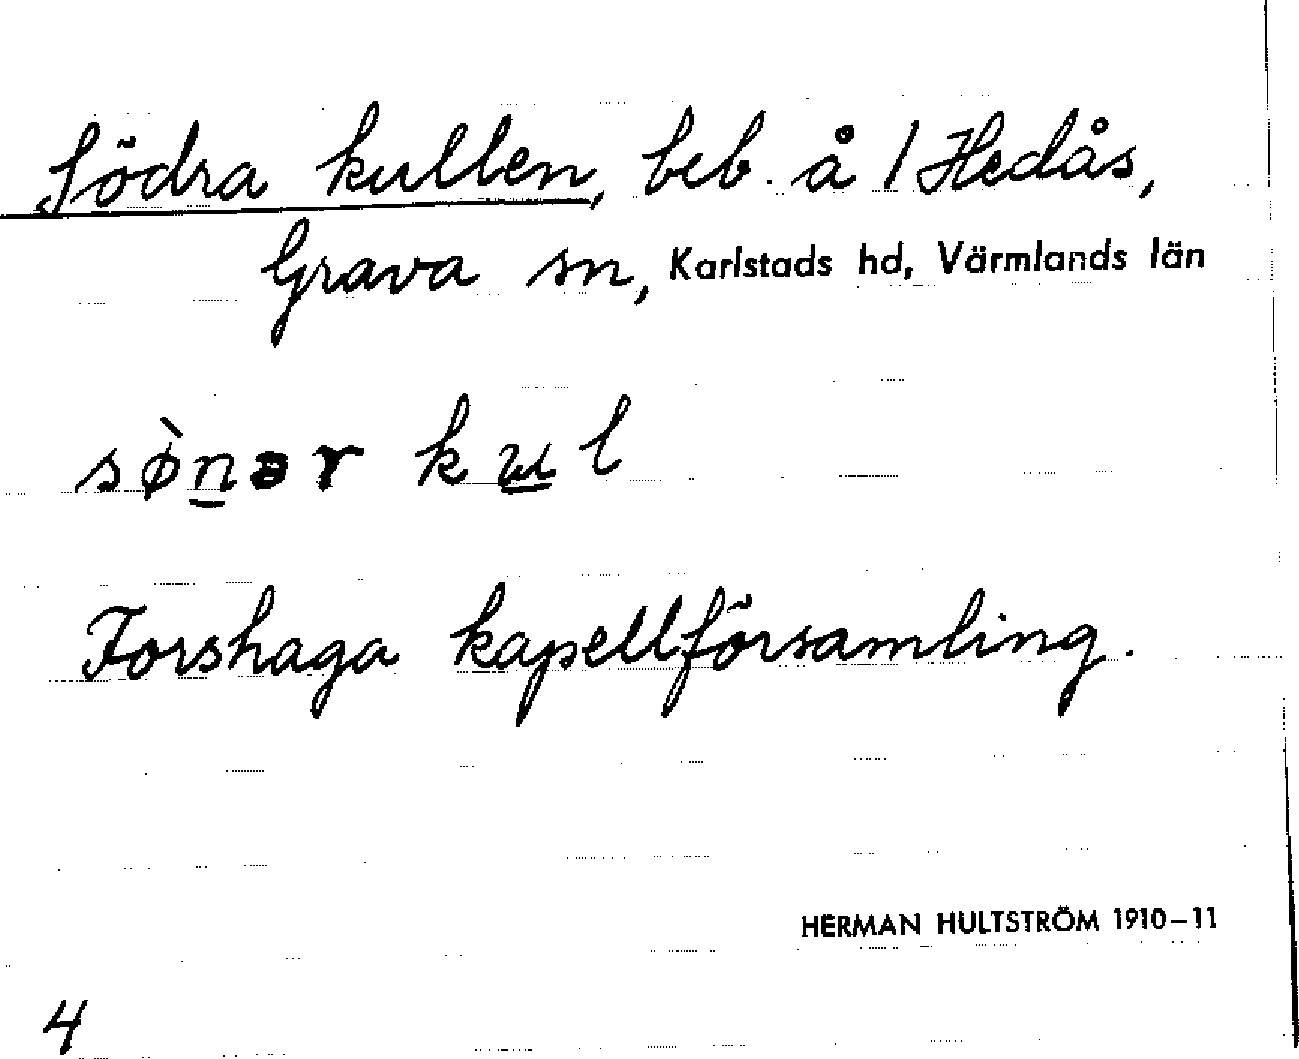 Södra kullen, beb. å 1 Hedås,
Grava sn, Karlstads hd, Värmlands län
sø̀n̲ər ku̲l
Forshaga kapellförsamling.
HERMAN HULTSTRÖM 1910–11
4